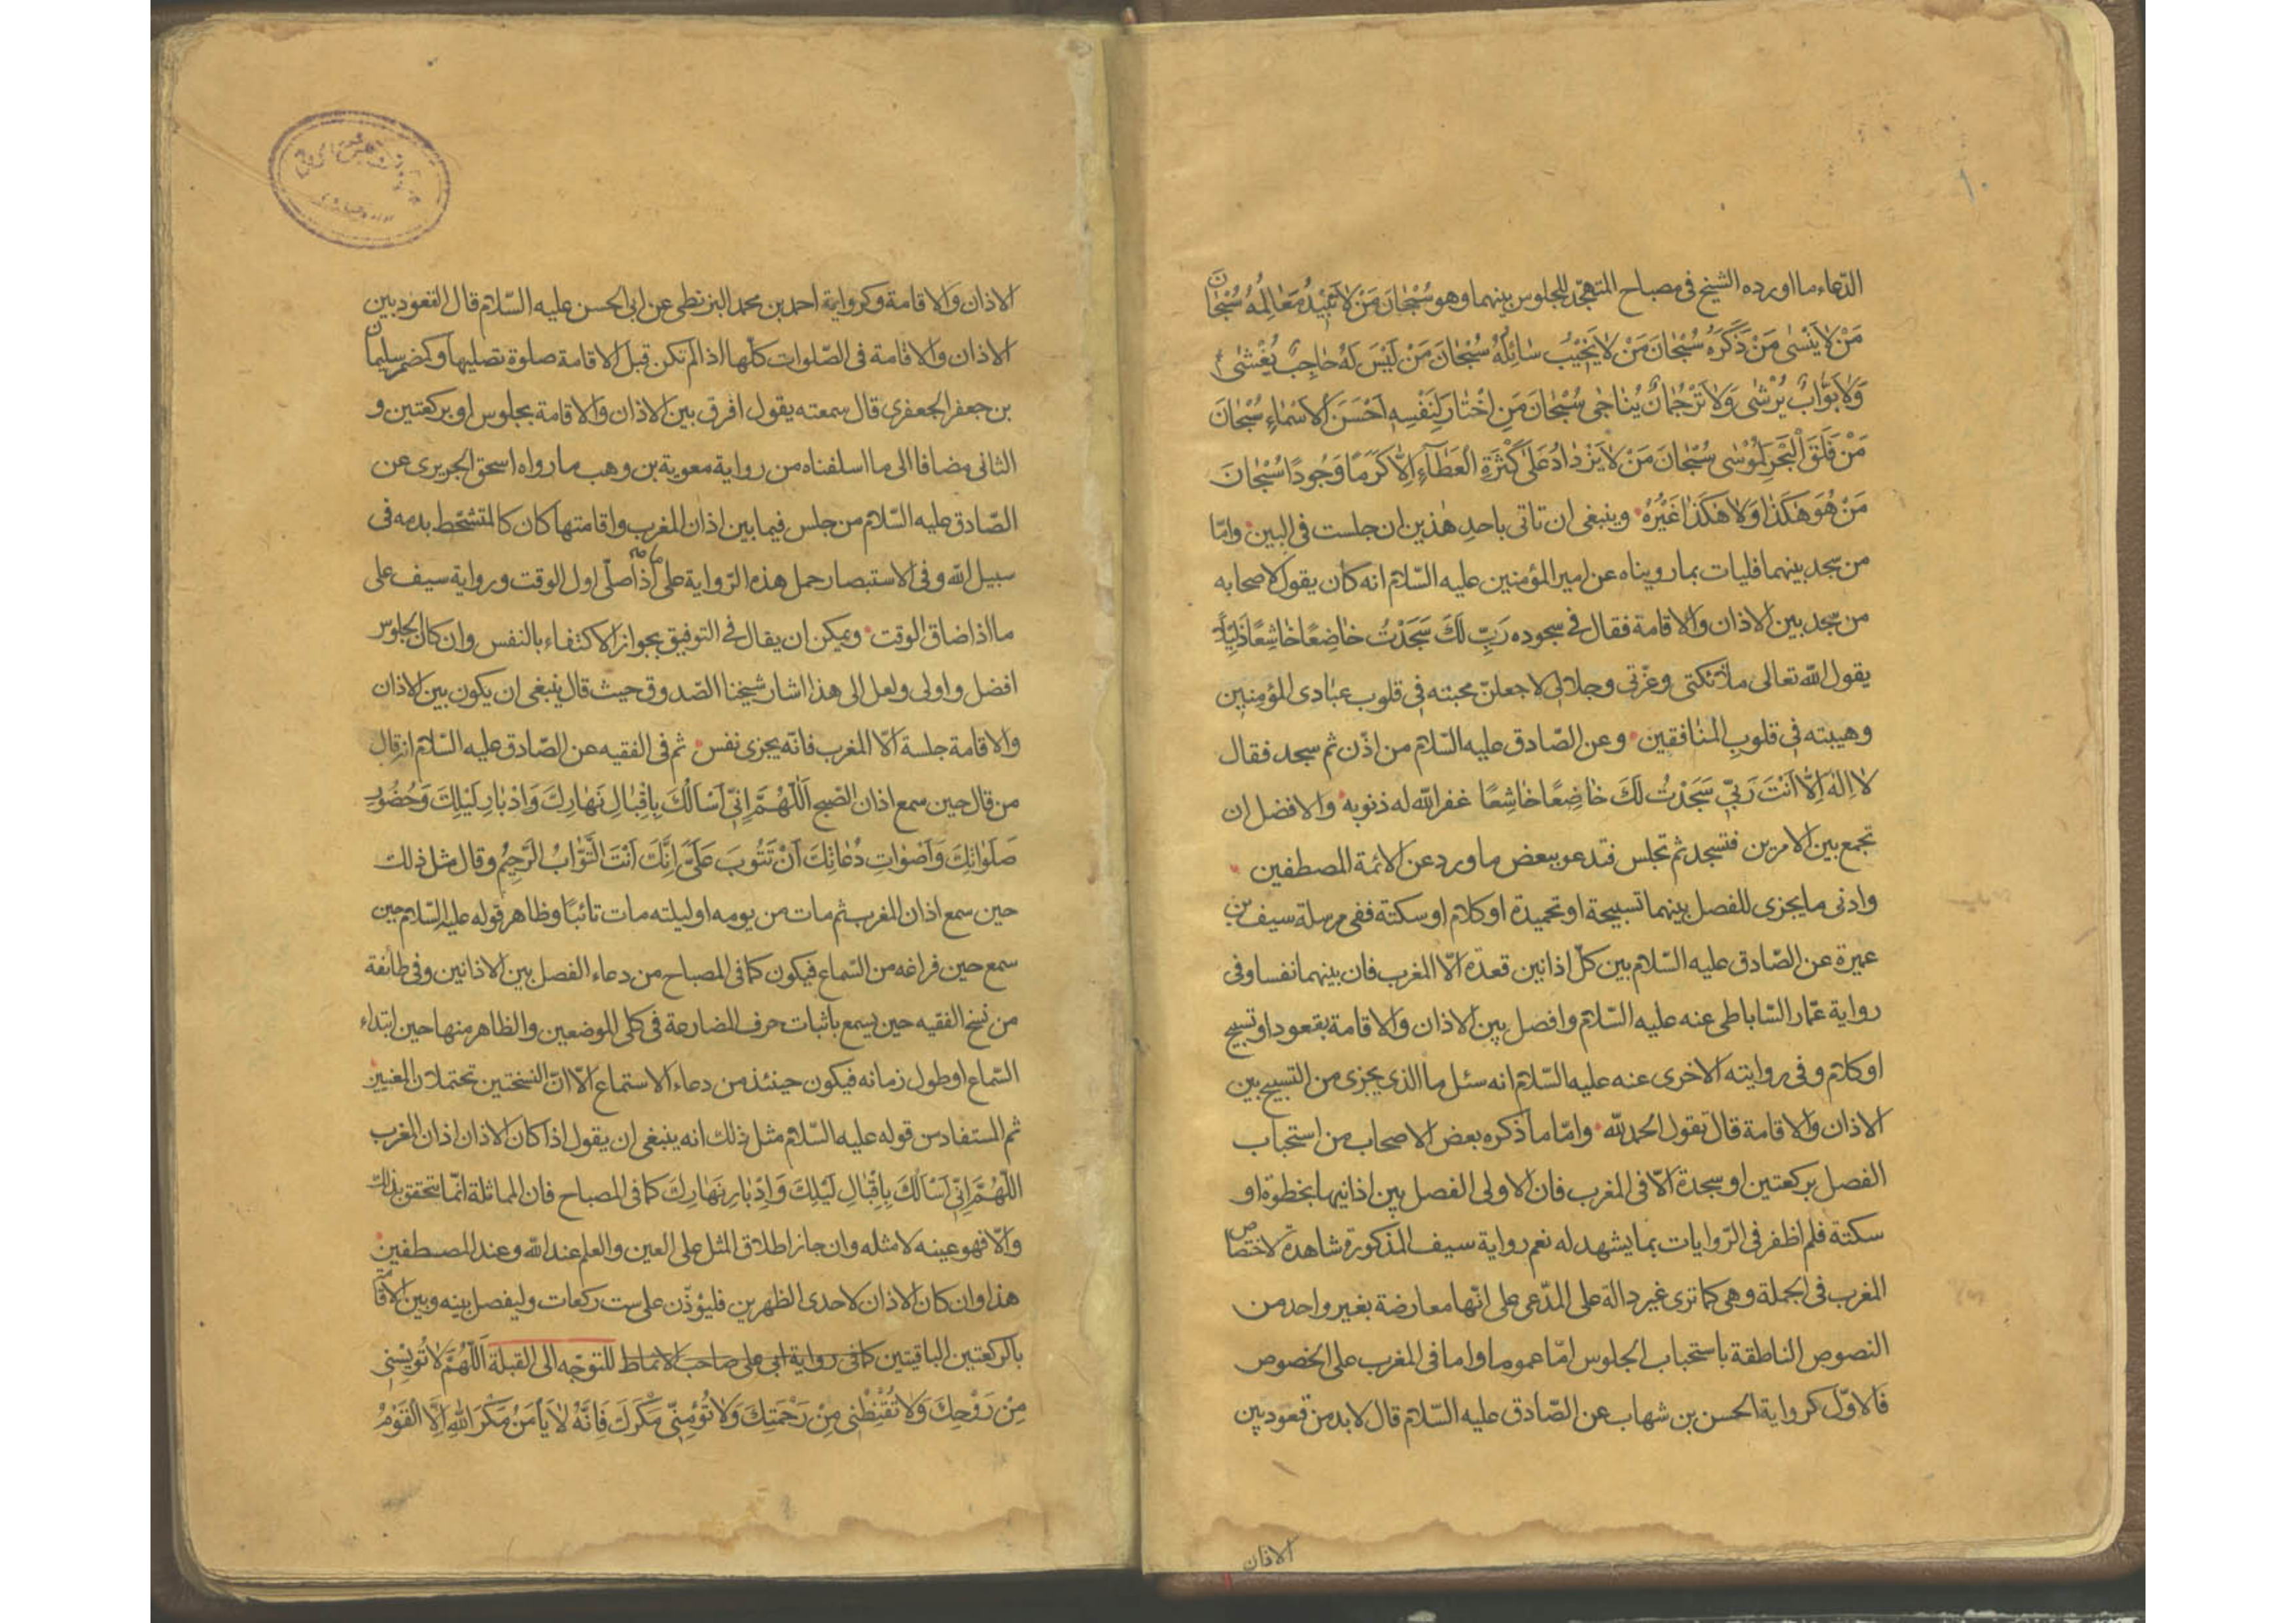 ١٠
الدّعاء ما اورده الشيخ فى مصباح المتهجّد للجلوس بينهما وهو سُبْحَانَ مَنْ لَا تَبِيْدُ مَعَالِمُهُ سُبْحَانَ
مَنْ لَا يَنْسٰى مَنْ ذَكَرَهُ سُبْحَانَ مَنْ لَا يَخِيْبُ سَائِلُهُ سُبْحَانَ مَنْ لَيْسَ لَهُ حَاجِبٌ يُغْشٰى
وَلَا بَوَّابٌ يُرْشٰى وَلَا تَرْجُمَانٌ يُنَاجٰى سُبْحَانَ مَنِ اخْتَارَ لِنَفْسِهِ اَحْسَنَ الْاَسْمَاءِ سُبْحَانَ
مَنْ فَلَقَ الْبَحْرَ لِمُوْسٰى سُبْحَانَ مَنْ لَا يَزْدَادُ عَلٰى كَثْرَةِ الْعَطَآءِ اِلَّا كَرَمًا وَجُودًا سُبْحَانَ
مَنْ هُوَ هٰكَذَا وَلَا هٰكَذَا غَيْرُهُ وينبغى ان تاتى باحد هذين ان جلست فى البين وامّا
من سجد بينهما فليات بما رويناه عن امير المؤمنين عليه السّلام انه كان يقول لاصحابه
من سجد بين الاذان والاقامة فقال فى سجوده رَبِّ لَكَ سَجَدْتُ خَاضِعًا خَاشِعًا ذَلِيْلًا
يقول الله تعالى ملائكتى وعزّتى وجلالى لاجعلنّ محبته فى قلوب عبادى المؤمنين
وهيبته فى قلوب المنافقين وعن الصّادق عليه السّلام من اذّن ثم سجد فقال
لَا اِلٰهَ اِلَّا اَنْتَ رَبِّى سَجَدْتُ لَكَ خَاضِعًا خَاشِعًا غفر الله له ذنوبه والافضل ان
تجمع بين الامرين فتسجد ثم تجلس فتدعو ببعض ما ورد عن الائمة المصطفين
وادنى ما يجزى للفصل بينهما تسبيحة او تحميدة او كلام او سكتة ففى مرسلة سيف بن
عميرة عن الصّادق عليه السّلام بين كلّ اذانين قعدة الّا المغرب فان بينهما نفسا وفى
رواية عمّار السّاباطى عنه عليه السّلام وافصل بين الاذان والاقامة بقعود او تسبيح
او كلام وفى روايته الاخرى عنه عليه السّلام انه سئل ما الذى يجزى من التسبيح بين
الاذان والاقامة قال تقول الحمد لله وامّا ما ذكره بعض الاصحاب من استحباب
الفصل بركعتين او سجدة الّا فى المغرب فان الاولى الفصل بين اذانيها بخطوة او
سكتة فلم اظفر فى الرّوايات بما يشهد له نعم رواية سيف المذكورة شاهدة لاختصاص
المغرب فى الجملة وهى كما ترى غير دالة على المدّعى على انّها معارضة بغير واحد من
النصوص الناطقة باستحباب الجلوس امّا عموما واما فى المغرب على الخصوص
فالاوّل كرواية الحسن بن شهاب عن الصّادق عليه السّلام قال لا بد من قعود بين
الاذان
الاذان والاقامة وكرواية احمد بن محمد البزنطى عن ابى الحسن عليه السّلام قال القعود بين
الاذان والاقامة فى الصّلوات كلّها اذا لم تكن قبل الاقامة صلوة تصليها وكمضمر سليمان
بن جعفر الجعفرى قال سمعته يقول افرق بين الاذان والاقامة بجلوس او بركعتين و
الثانى مضافا الى ما اسلفناه من رواية معوية بن وهب ما رواه اسحق الجريرى عن
الصّادق عليه السّلام من جلس فيما بين اذان المغرب واقامتها كان كالمتشحّط بدمه فى
سبيل الله وفى الاستبصار حمل هذه الرّواية على ما اذا صلّى اول الوقت ورواية سيف على
ما اذا ضاق الوقت ويمكن ان يقال فى التوفيق بجواز الاكتفاء بالنفس وان كان الجلوس
افضل واولى ولعل الى هذا اشار شيخنا الصّدوق حيث قال ينبغى ان يكون بين الاذان
والاقامة جلسة الّا المغرب فانّه يجزى نفس ثم فى الفقيه عن الصّادق عليه السّلام انه قال
من قال حين سمع اذان الصّبح اَللّٰهُمَّ اِنِّى اَسْاَلُكَ بِاِقْبَالِ نَهَارِكَ وَاِدْبَارِ لَيْلِكَ وَحُضُورِ
صَلَوَاتِكَ وَاَصْوَاتِ دُعَاتِكَ اَنْ تَتُوبَ عَلَىَّ اِنَّكَ اَنْتَ التَّوَّابُ الرَّحِيْمُ وقال مثل ذلك
حين سمع اذان المغرب ثم مات من يومه او ليلته مات تائبًا وظاهر قوله عليه السّلام حين
سمع حين فراغه من السّماع فيكون كما فى المصباح من دعاء الفصل بين الاذانين وفى طائفة
من نسخ الفقيه حين يسمع باثبات حرف المضارعة فى كلى الموضعين والظاهر منها حين ابتداء
السّماع او طول زمانه فيكون حينئذ من دعاء الاستماع الّا انّ النسختين تحتملان المعنيين
ثم المستفاد من قوله عليه السّلام مثل ذلك انه ينبغى ان يقول اذا كان الاذان اذان المغرب
اَللّٰهُمَّ اِنِّى اَسْاَلُكَ بِاِقْبَالِ لَيْلِكَ وَاِدْبَارِ نَهَارِكَ كما فى المصباح فان المماثلة انّما تتحقق بذلك
والّا فهو عينه لا مثله وان جاز اطلاق المثل على العين والعلم عند الله وعند المصطفين
هذا وان كان الاذان لاحدى الظهرين فليؤذّن على ست ركعات وليفصل بينه وبين الاقامة
بالركعتين الباقيتين كما فى رواية ابى على صاحب الانماط للتوجّه الى القبلة اَللّٰهُمَّ لَا تُؤْيِسْنِى
مِنْ رَوْحِكَ وَلَا تُقَنِّطْنِى مِنْ رَحْمَتِكَ وَلَا تُؤْمِنِّى مَكْرَكَ فَاِنَّهُ لَا يَأْمَنُ مَكْرَ اللّٰهِ اِلَّا الْقَوْمُ